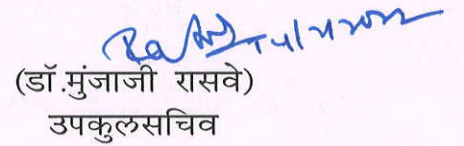 (डॉ.मुंजाजी रासवे)
उपकुलसचिव